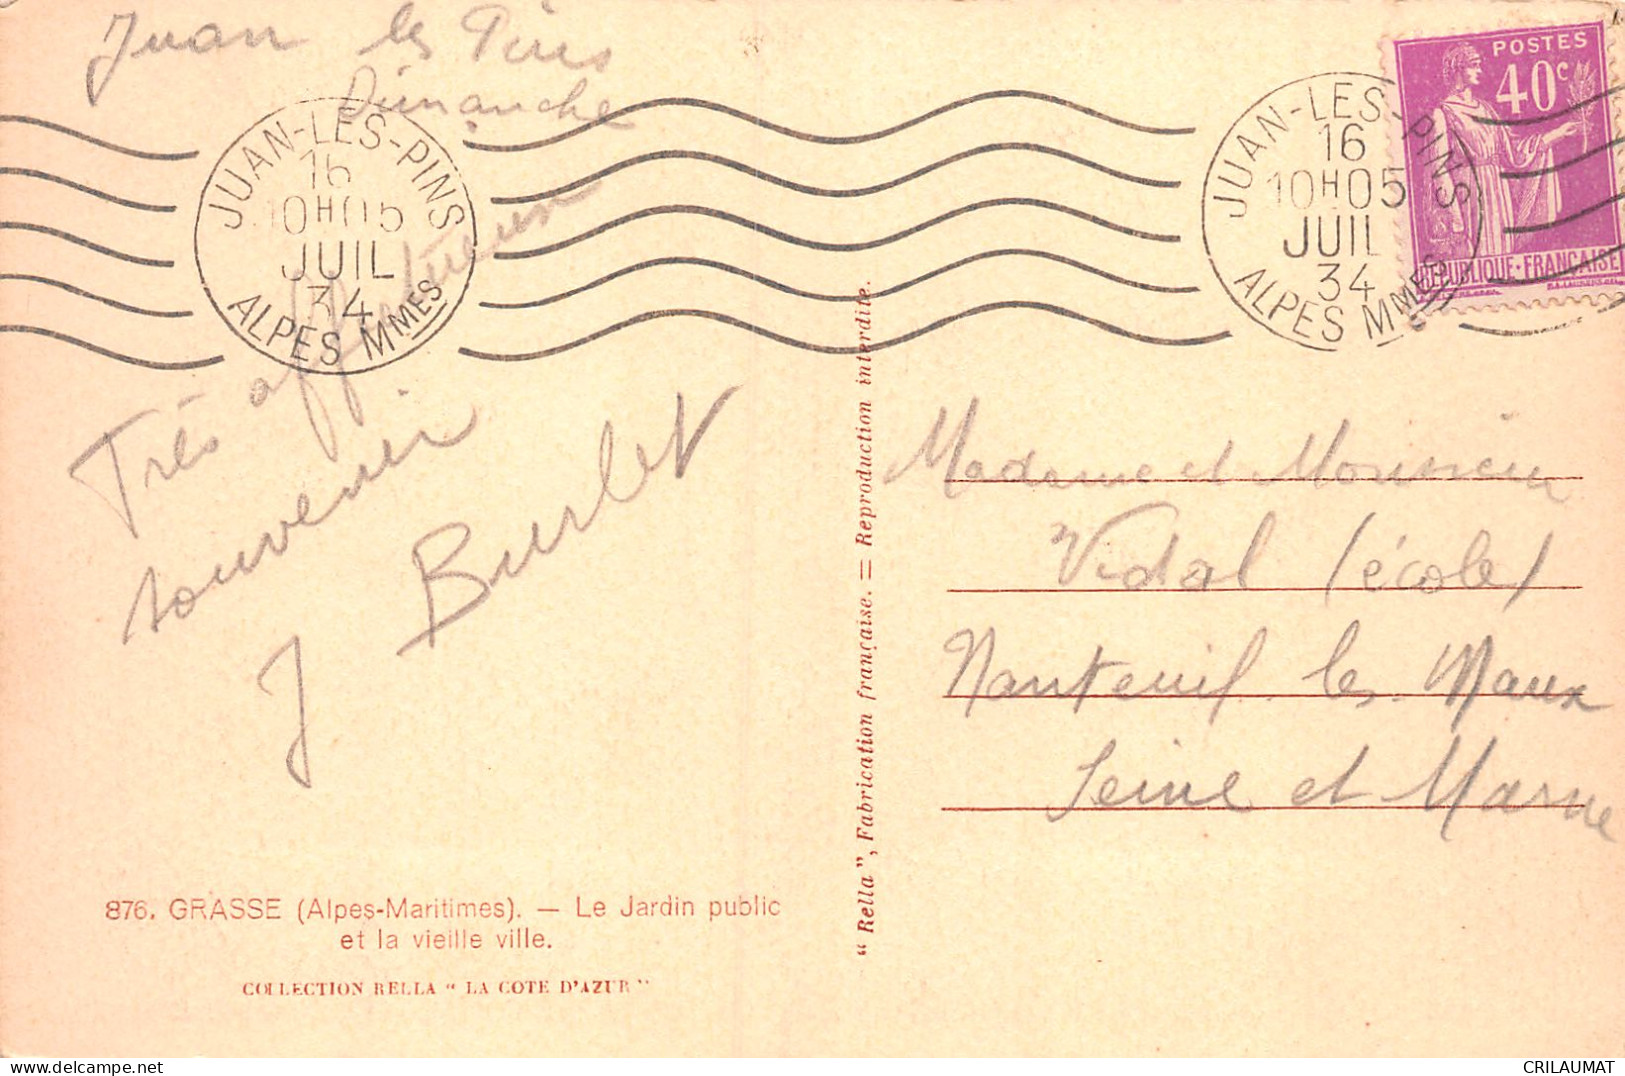 Juan les Pins
Dimanche
JUAN-LES-PINS
16
10H05
JUIL
34
ALPES MMES
JUAN-LES-PINS
16
10H05
JUIL
34
ALPES MMES
POSTES
40c
RÉPUBLIQUE·FRANÇAISE
Très affectueux
souvenir
J Burlet
Madame et Monsieur
Vidal (école)
Nanteuil les Maux
Seine et Marne
876. GRASSE (Alpes-Maritimes). — Le Jardin public
et la vieille ville.
COLLECTION RELLA " LA COTE D'AZUR "
“ Rella ”, Fabrication française. = Reproduction interdite.
CRILAUMAT